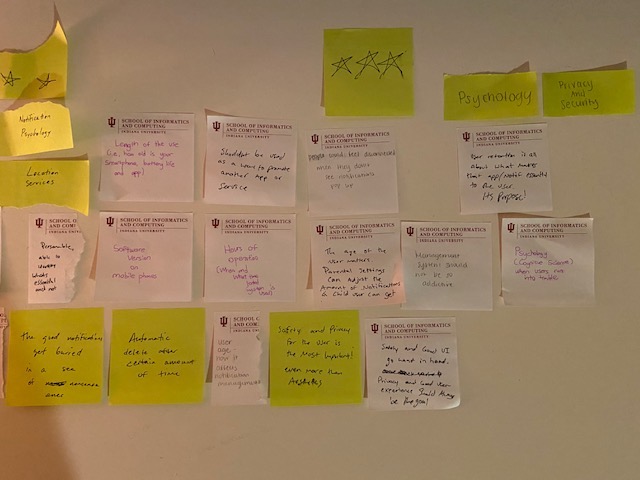 Notification
Psychology
Location
Services
Psychology
Privacy
And
Security
SCHOOL OF INFORMATICS
AND COMPUTING
INDIANA UNIVERSITY
Length of the use
(i.e., how old is your
Smartphone, battery life
and app)
SCHOOL OF INFORMATICS
AND COMPUTING
INDIANA UNIVERSITY
Shouldnt be used
as a way to promote
another App or
Service
SCHOOL OF INFORMATICS
AND COMPUTING
INDIANA UNIVERSITY
people would feel disconnected
when they don't
see notifications
pop up
SCHOOL OF INFORMATICS
AND COMPUTING
INDIANA UNIVERSITY
User retention is as
about what makes
that app/Notif essential
to the user.
Its Purpose!
SCHOOL O
AND COM
INDIANA
Personable,
able to
identify
whats
essential
and not
SCHOOL OF INFORMATICS
AND COMPUTING
INDIANA UNIVERSITY
Software
Version
on
mobile phones
SCHOOL OF INFORMATICS
AND COMPUTING
INDIANA UNIVERSITY
Hours of
operation
(When and
what
time
system is
used)
SCHOOL OF INFORMATICS
AND COMPUTING
INDIANA UNIVERSITY
The age of the
user matters
Parental Settings
Can Adjust the
Amount of Notifications
a Child user Can Get
SCHOOL OF INFORMATICS
AND COMPUTING
INDIANA UNIVERSITY
Management
System should
not be so
addictive
SCHOOL OF INFORMATICS
AND COMPUTING
INDIANA UNIVERSITY
Psychology
(Cognitive Science)
when users run
into traffic
The good notifications
get buried
in a sea
of nonsense
ones
Automatic
delete after
certain amount
of time
SCHOOL O
AND COM
INDIANA
user
age
notification
management
Safety and Privacy
for the User is
the Most Important!
even more than
Aesthetics
SCHOOL OF INFORMATICS
AND COMPUTING
INDIANA UNIVERSITY
Safety and Good UI
go hand in hand.
Privacy and Good User
experience Should Always
be the goal!